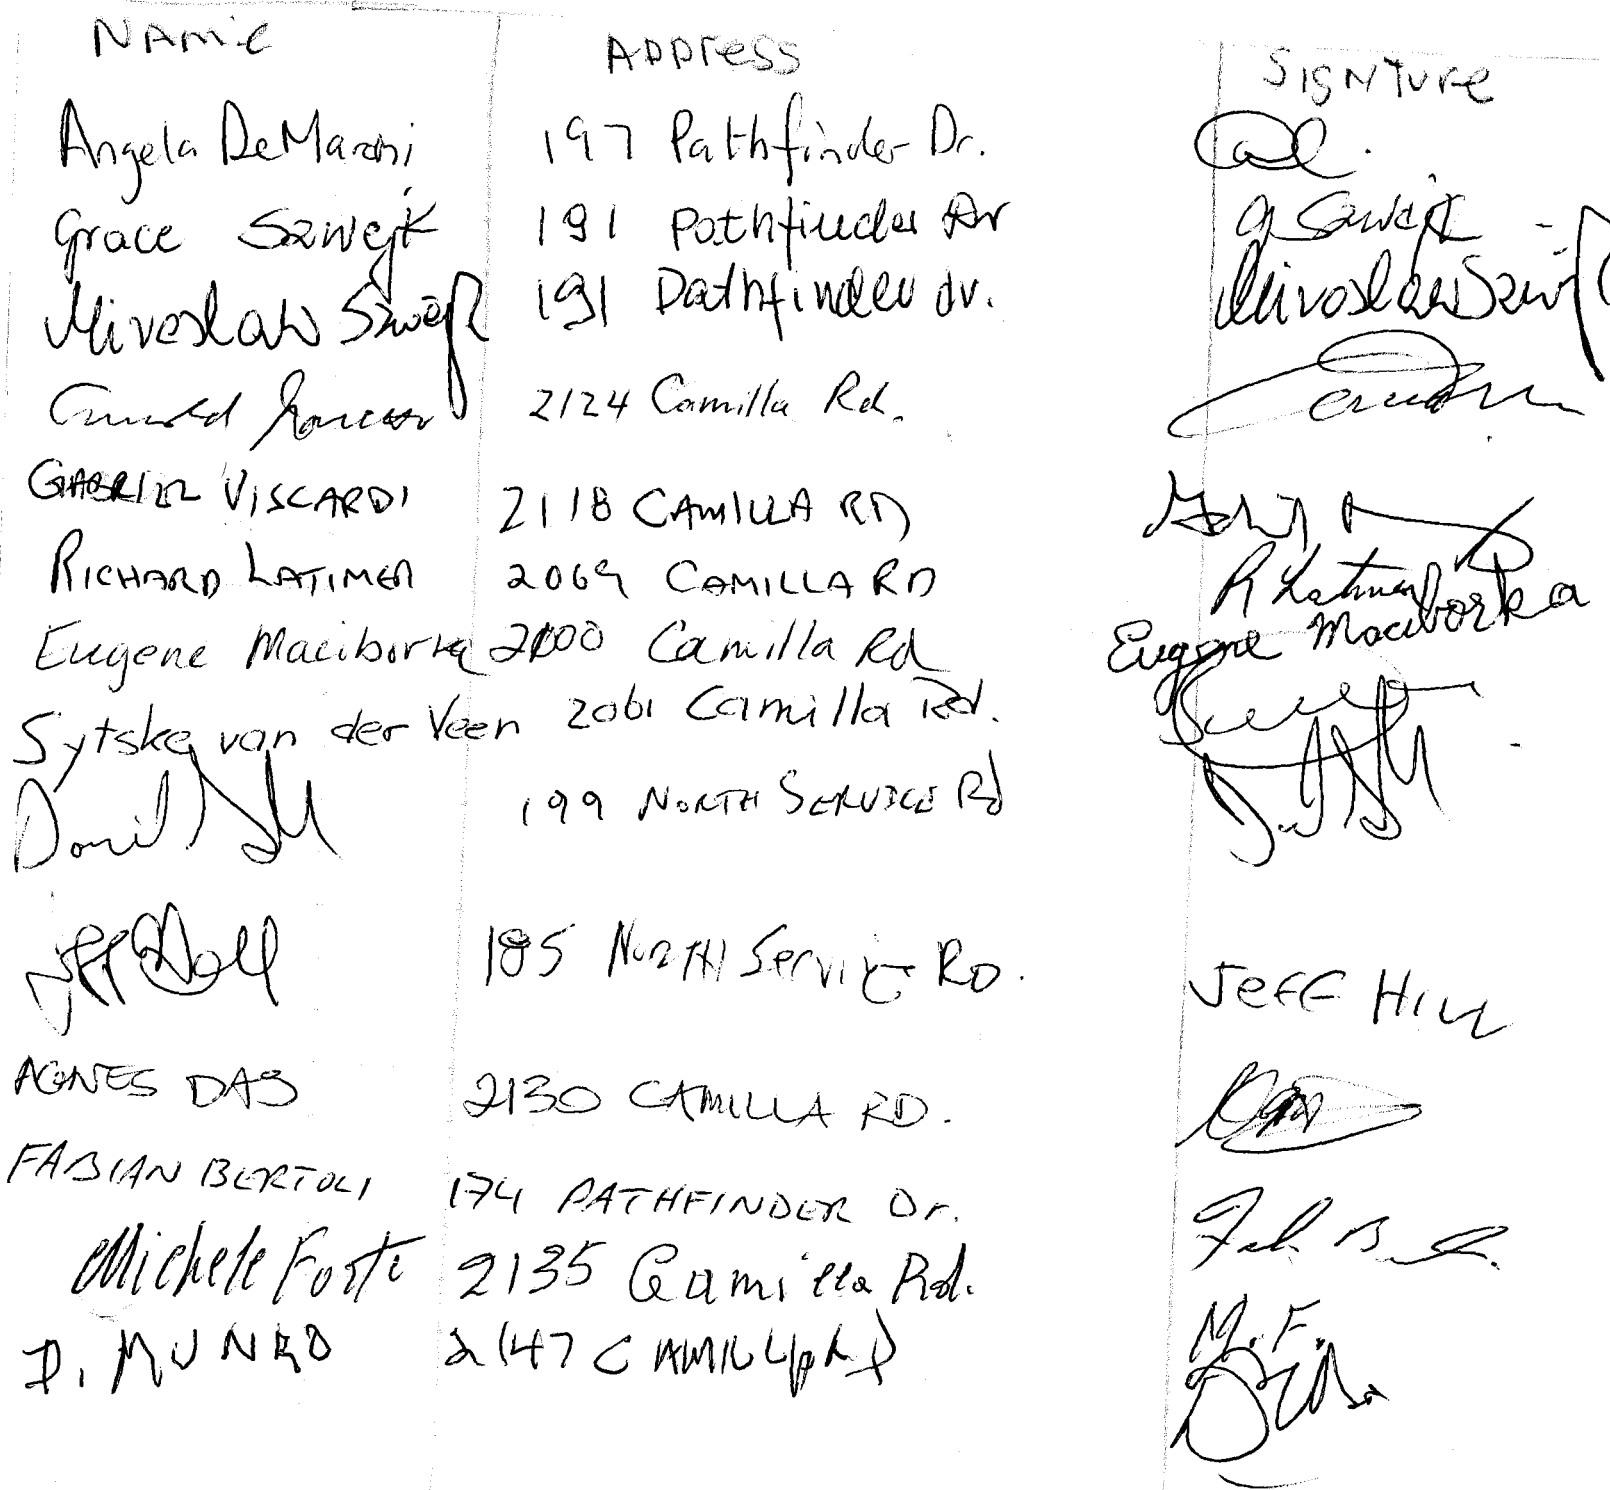 NAME ADDRESS SIGNTURE
Angela DeMarchi 197 Pathfinder Dr.
Grace Szwejk 191 Pathfinder Dr G Szwejk
Miroslaw 191 Pathfinder dr. Miroslaw
2124 Camilla Rd.
GABRIEL VISCARDI 2118 CAMILLA RD
RICHARD LATIMER 2069 CAMILLA RD R Latimer
Eugene Maciborka 2100 Camilla Rd Eugene Maciborka
Sytske van der Veen 2061 Camilla Rd.
199 NORTH SERVICE Rd
185 NORTH Service RD. JEFF HILL
AGNES DAS 2130 CAMILLA RD.
FABIAN BERTOLI 174 PATHFINDER Dr.
Michele Forte 2135 Camilla Rd. M.F.
D. MUNRO 2147 CAMILLA RD